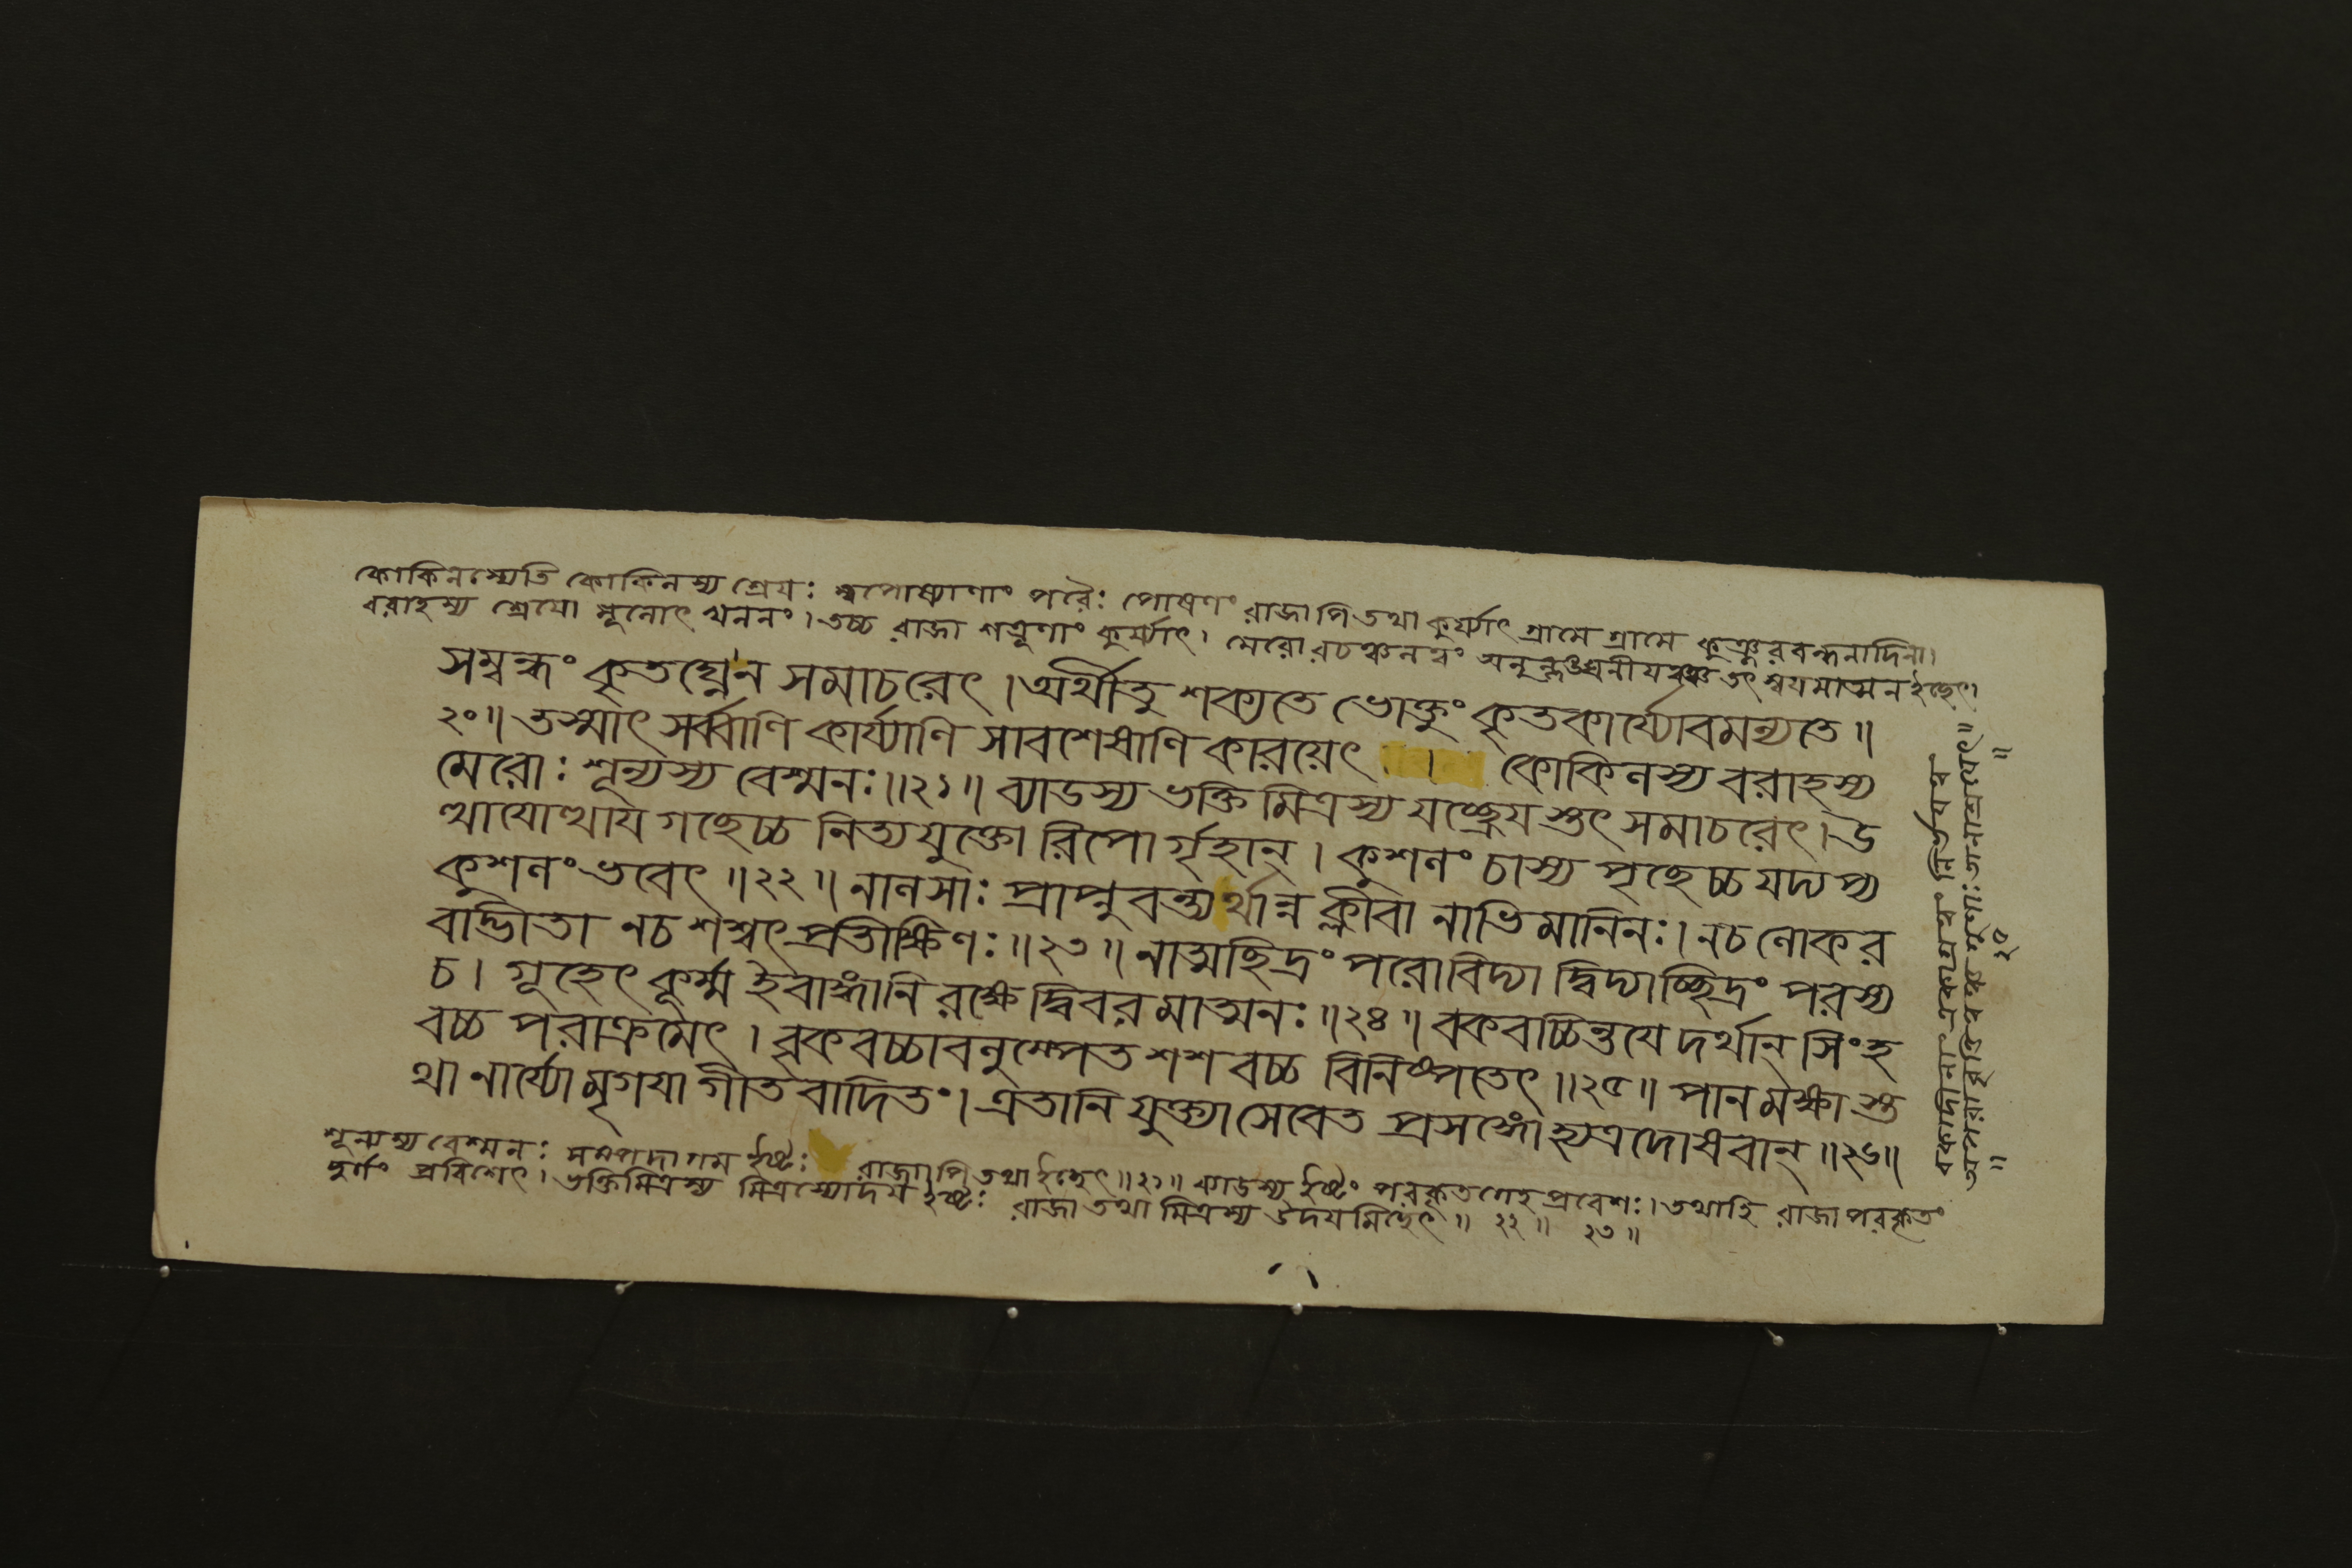 কোকিলস্যেতি কোকিলস্য শ্রেয়ঃ স্বপোষ্যাণাং পরৈঃ পোষণং রাজাপি তথা কুর্য্যাৎ গ্রামে গ্রামে কুঞ্জরবন্ধনাদিনা।
বরাহস্য শ্রেযো মূলোৎখননং। তচ্চ রাজা শত্রুণাং কুর্য্যাৎ। মেরোরচঞ্চলত্বং অনুল্লঙঘনীয়ত্বঞ্চ তৎ স্বয়মাত্মন ইছেৎ।
সম্বন্ধং কৃতঘ্নেন সমাচরেৎ। অর্থীতু শক্যতে ভোক্তুং কৃতকার্য্যোবমন্যতে॥
২০॥ তস্মাৎ সর্ব্বাণি কার্য্যাণি সাবশেষাণি কারয়েৎ । কোকিলস্য বরাহস্য
মেরোঃ শূন্যস্য বেশ্মনঃ॥২১॥ ব্যাডস্য ভক্তিমিত্রস্য যচ্ছ্রেয়স্তৎ সমাচরেৎ। উ
ত্থাযোত্থায় গছেচ্চ নিত্যযুক্তো রিপোর্গৃহান্। কুশলং চাস্য পৃছেচ্চ যদ্যপ্য
কুশলং ভবেৎ॥২২॥ নালসাঃ প্রাপ্নুবন্ত্যর্থান্ন ক্লীবা নাভিমানিনঃ। নচ লোকর
বাদ্ভীতা নচ শশ্বৎ প্রতীক্ষিণঃ॥২৩॥ নাত্মছিদ্রং পরোবিদ্যা দ্বিদ্যাচ্ছিদ্রং পরস্য
চ। গূহেৎ কূর্ম্ম ইবাঙ্গানি রক্ষেদ্বিবরমাত্মনঃ॥২৪॥ বকবচ্চিন্তযেদর্থান্ সিংহ
বচ্চ পরাক্রমেৎ। বৃকবচ্চাবলুম্পেত শশবচ্চ বিনিষ্পতেৎ॥২৫॥ পানমক্ষাস্ত
থা নার্য্যো মৃগযা গীতবাদিতং। এতানি যুক্ত্যা সেবেত প্রসঙ্গো হ্যত্র দোষবান্॥২৬॥
শূন্যস্য বেশ্মনঃ সম্পদাগম ইষ্টঃ রাজাপি তথা ইছেৎ॥২১॥ ব্যাডস্য ইষ্টং পরকৃতগেহপ্রবেশঃ। তথাহি রাজা পরকৃতং
দুর্গং প্রবিশেৎ। ভক্তিমিত্রস্য মিত্রস্যোদয় ইষ্টঃ রাজা তথা মিত্রস্য উদয়মিছেৎ॥ ২২॥ ২৩॥
২০